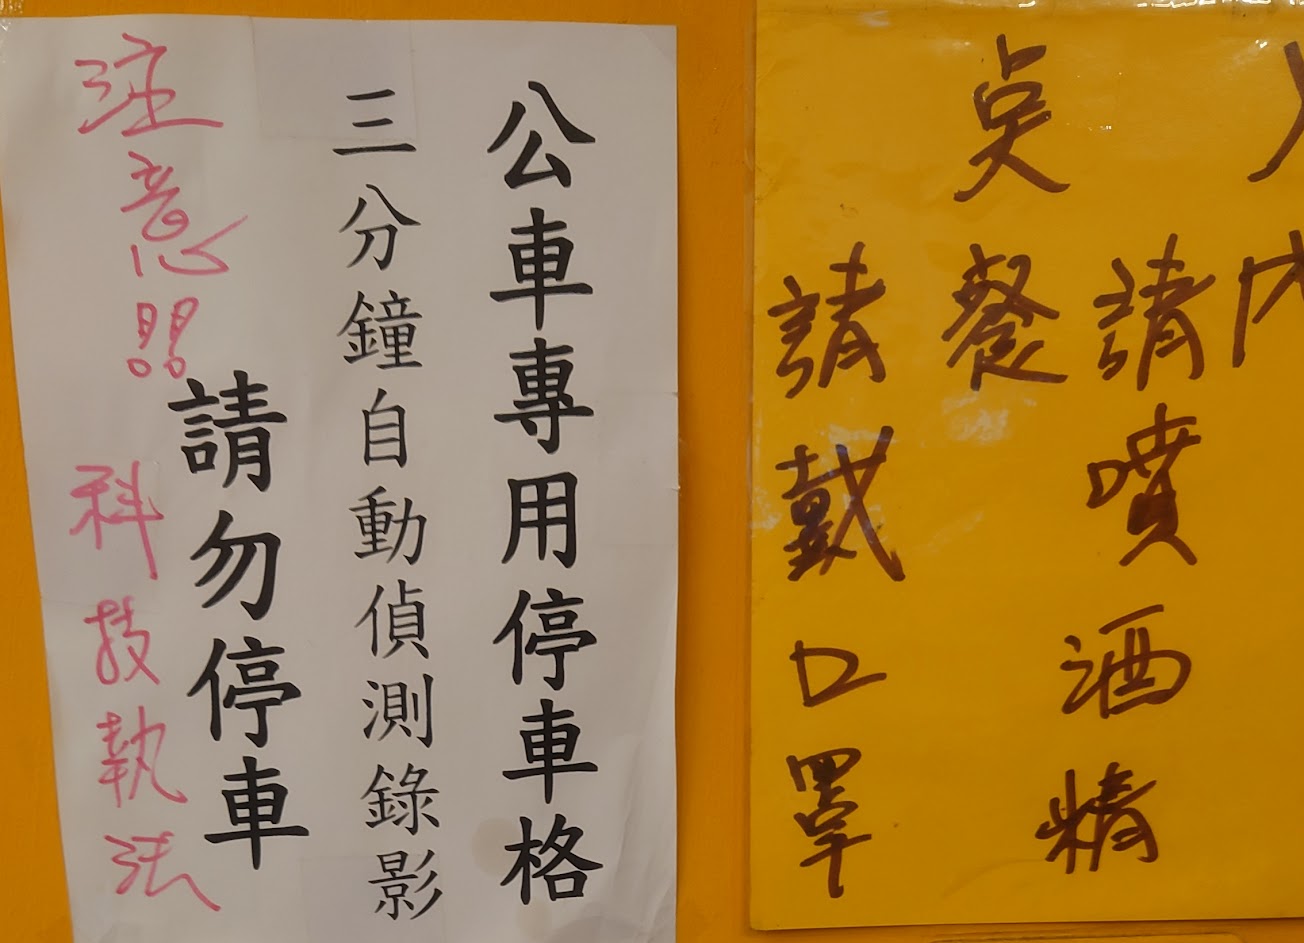 公車專用停車格
三分鐘自動偵測錄影
請勿停車
注意!!
科技執法
請噴酒精
奌餐
請戴口罩